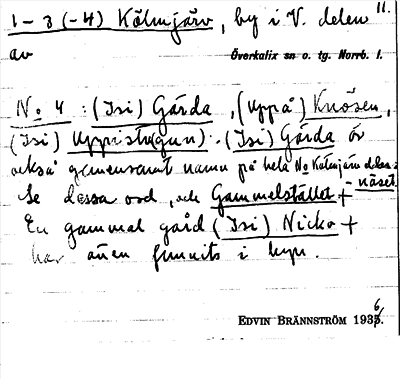 11.
1-3 (-4) Kölmjärv, by i V. delen
av Överkalix sn o. tg. Norrb. l.
No 4 : (Isi) Gårda, (Uppå) Knösen,
(Isi) Uppistugun). (Isi) Gårda är
också gemensamt namn på hela No Kölmjärvdelen:
Se dessa ord, och Gammelstället + -näset.
En gammal gård (Isi) Nicko +
har även funnits i byn.
EDVIN BRÄNNSTRÖM 1936.